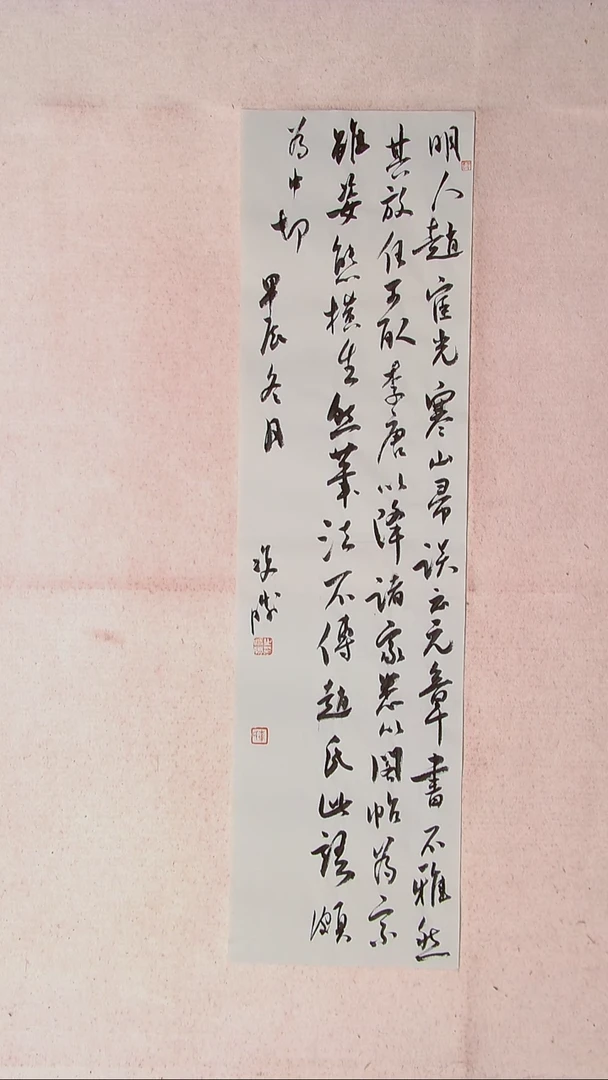 明人趙宦光寒山帚談云元章書不雅然
其放任可取李唐以降諸家悉以閣帖為宗
雖姿態橫生然筆法不傳趙氏此語頗
為中切
甲辰冬月